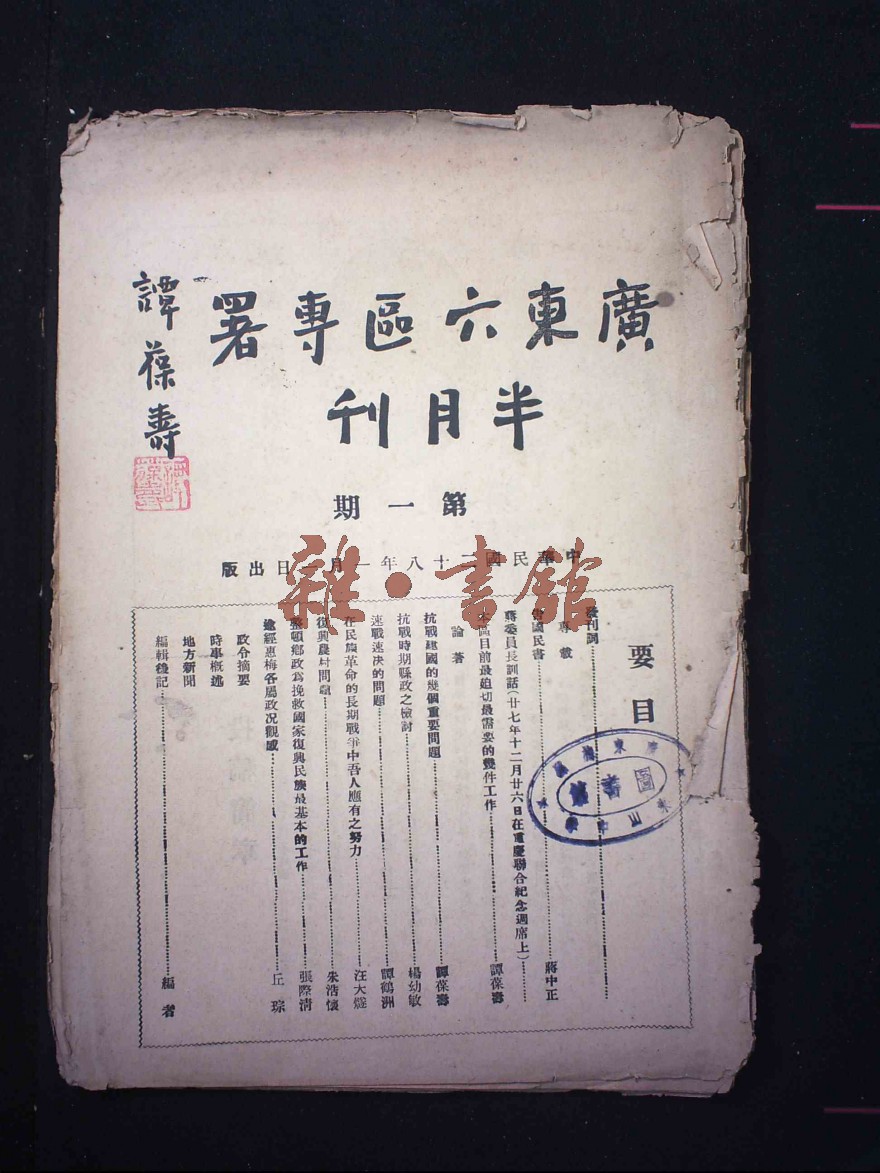 廣東六區專署
半月刊
譚葆壽
第一期
中華民國二十八年一月一日出版
雜·書館
要目
發刊詞
專載
告國民書 蔣中正
蔣委員長訓話(廿七年十二月廿六日在重慶聯合紀念週席上)
本區目前最迫切最需要的幾件工作 譚葆壽
論著
抗戰建國的幾個重要問題 譚葆壽
抗戰時期縣政之檢討 楊幼敏
速戰速决的問題 譚鶴洲
在民族革命的長期戰爭中吾人應有之努力 汪大燧
復興農村問題 朱浩懷
整頓鄉政為挽救國家復興民族最基本的工作 張際清
途經惠梅各屬政况觀感 丘琮
政令摘要
時事概述
地方新聞
編輯後記 編者